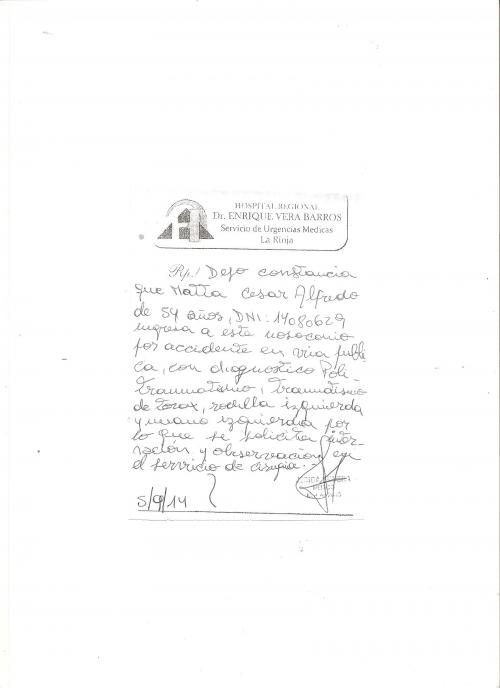 HOSPITAL REGIONAL
Dr. ENRIQUE VERA BARROS
Servicio de Urgencias Medicas
La Rioja
Rp./ Dejo constancia
que Matta Cesar Alfredo
de 54 años, DNI: 14080629
ingresa a este nosocomio
por accidente en via públi-
ca, con diagnostico Poli-
traumatismo, traumatismo
de torax, rodilla izquierda
y mano izquierda por
lo que se solicita inter-
nación y observación en
el servicio de cirugia.
5/9/14